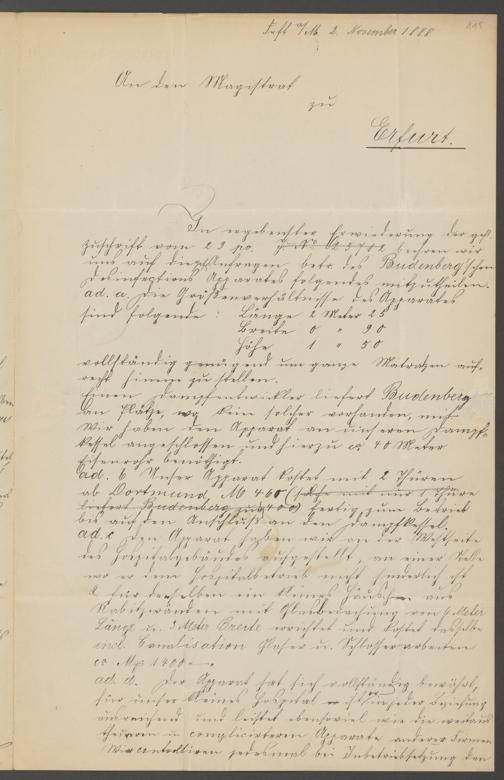 Frft a/M. 2. November 1888
An den Magistrat
zu
Erfurt.
In ergebenster Erwiederung der gefl.
Zuschrift vom 23 po. beehren wir
uns auf die Anfragen betr. des Budenberg'schen
Desinfections Apparates folgendes mitzutheilen.
ad. a. Die Größenverhältnisse des Apparates
sind folgende: Länge 2 Meter 25
Breite 0 " 90
Höhe 1 " 50
vollständig genügend um ganze Matratzen auf-
recht hinein zu stellen.
Einen Dampfentwickler liefert Budenberg
an Plätze, wo kein solcher vorhanden, mit
Wir haben den Apparat an unseren Dampf-
kessel angeschlossen und hierzu ca 40 Meter
Eisenrohr benöthigt.
ad. b Unser Apparat kostet mit 2 Thüren
ab Dortmund, M 460 (solche mit nur 1 Thüre
liefert Budenberg zu 400) fertig zum Betrieb
bis auf den Anschluß an den Dampfkessel.
ad. c Den Aparat haben wir an der Westseite
des Hospitalgebäudes aufgestellt, an einer Stelle
wo er dem Hospitalbetrieb nicht hinderlich ist
& für denselben ein kleines Häuschen aus
Rabitzwänden mit Glasbedachung von 6 Meter
Länge u. 3 Meter Breite errichtet und kostet dasselbe
incl. Canalisation Glaser u. Schlosserarbeiten
ca Mk 1400.-
ad. d. Der Apparat hat sich vollständig bewährt,
für unser kleines Hospital ist in jeder Beziehung
ausreichend und leistet ebensoviel wie die weitaus
theuren u complicirteren Apparate anderer Firmen
Wir controlliren jedesmal bei Inbetriebsetzung den